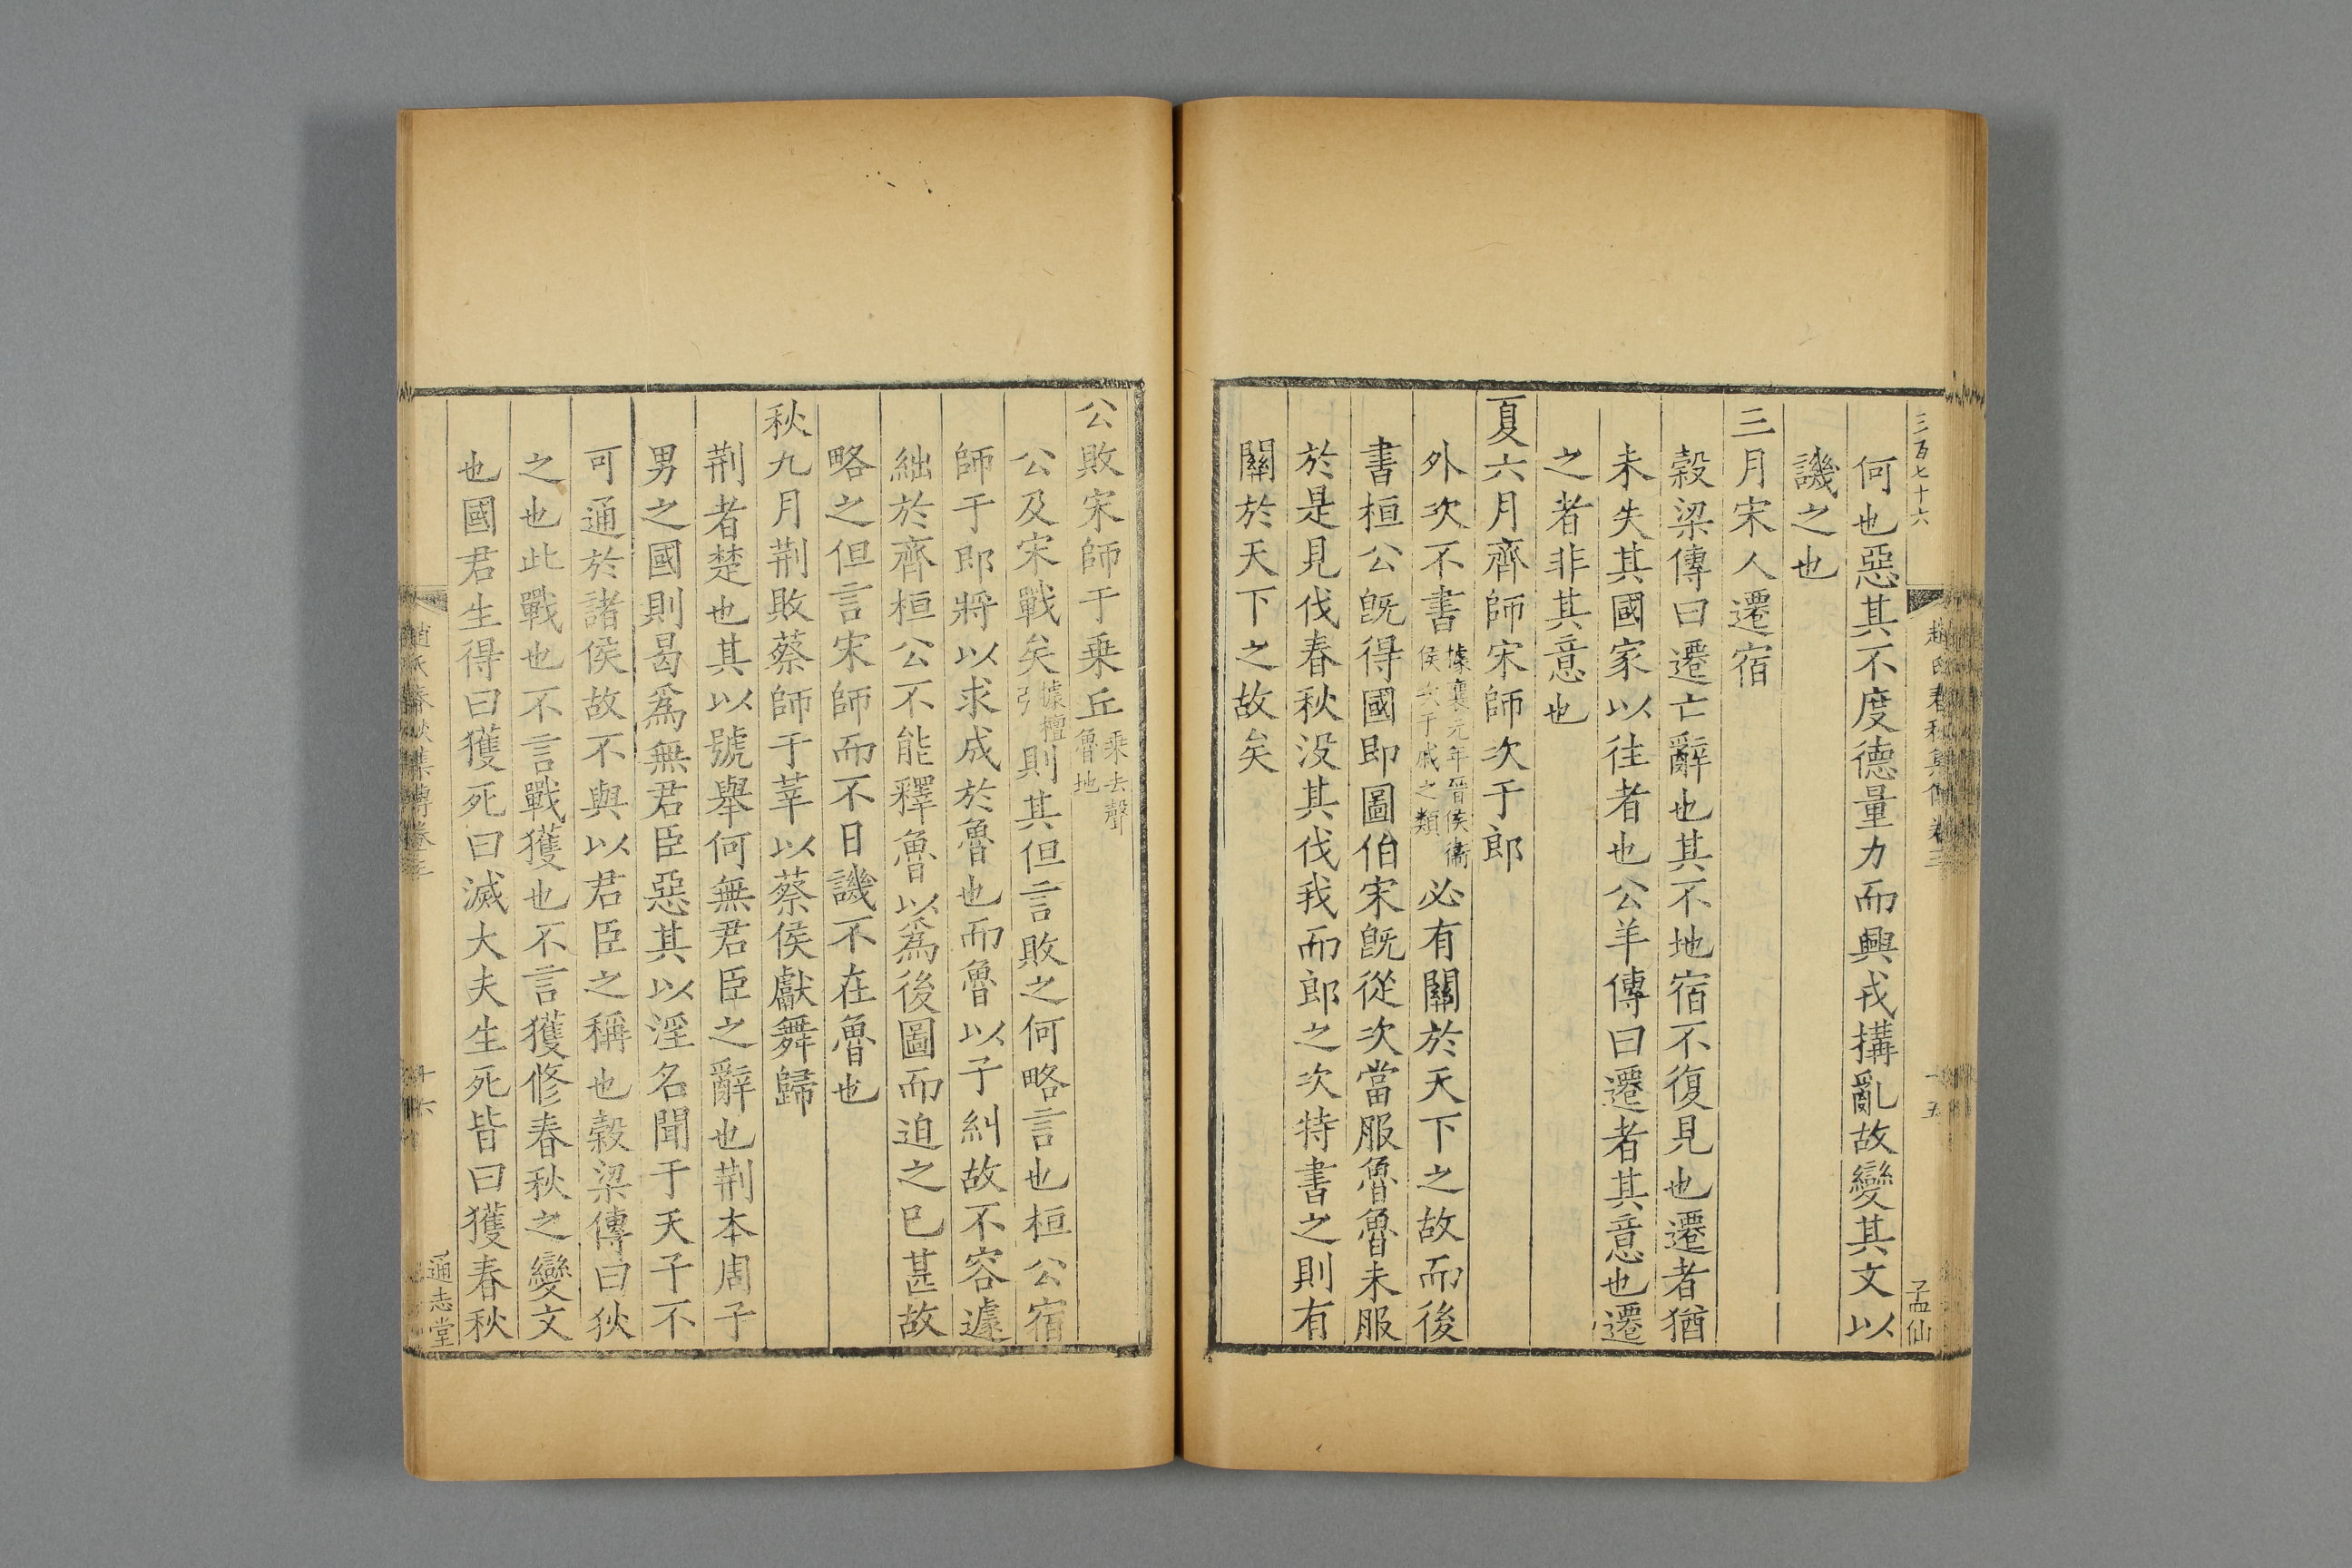 三百七十六
春秋集傳卷三
十五
孟仙
何也惡其不度德量力而興戎搆亂故變其文以
譏之也
三月宋人遷宿
榖梁傳曰遷亡辭也其不地宿不復見也遷者猶
未失其國家以往者也公羊傳曰遷者其意也遷
之者非其意也
夏六月齊師宋師次于郎
外次不書據襄元年晉侯衞侯次于戚之類必有關於天下之故而後
書桓公旣得國即圖伯宋旣從次當服魯魯未服
於是見伐春秋没其伐我而郎之次特書之則有
關於天下之故矣
公敗宋師于乗丘乗去聲魯地
公及宋戰矣據檀弓則其但言敗之何略言也桓公宿
師于郎將以求成於魯也而魯以子糾故不容遽
絀於齊桓公不能釋魯以爲後圖而迫之已甚故
略之但言宋師而不日譏不在魯也
秋九月荆敗蔡師于莘以蔡侯獻舞歸
荆者楚也其以號舉何無君臣之辭也荆本周子
男之國則曷爲無君臣惡其以淫名聞于天子不
可通於諸侯故不與以君臣之稱也榖梁傳曰狄
之也此戰也不言戰獲也不言獲修春秋之變文
也國君生得曰獲死曰滅大夫生死皆曰獲春秋
趙氏春秋集傳卷三
十六
通志堂